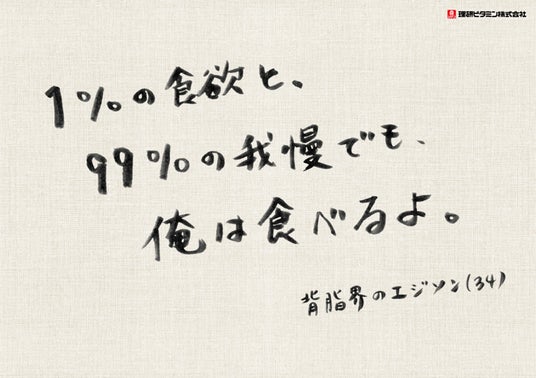 理研ビタミン株式会社
1%の食欲と、
99%の我慢でも、
俺は食べるよ。
背脂界のエジソン(34)